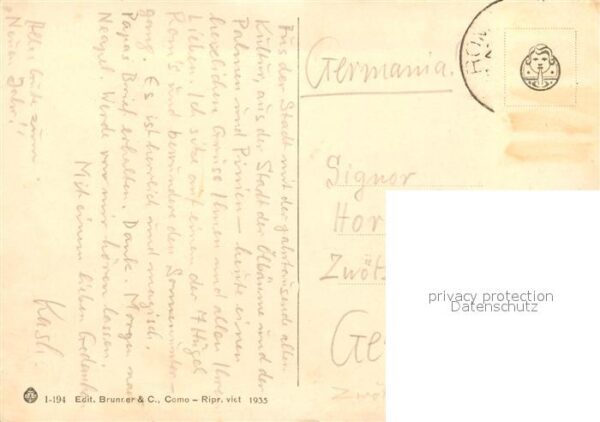 Aus der Stadt mit der jahrtausende alten
Kultur, aus der Stadt der Ölbäume und der
Palmen und Pinien – heute einen
herzlichen Gruss Ihnen und allen Ihren
Lieben. Ich sitze auf einem der 7 Hügel
Rom's und bewundere den Sonnenunter-
gang. Es ist herrlich und magisch.
Papas Brief erhalten. Dank. Morgen nach
Neapel. Werde von mir hören lassen.
Mit einem lieben Gedenken
Alles Gute zum
Neuen Jahr!
Germania.
ROM
Signor
Hor
Zwöt
Ge
Zwöt
privacy protection
Datenschutz
1-194 Edit. Brunner & C., Como – Ripr. viet 1935